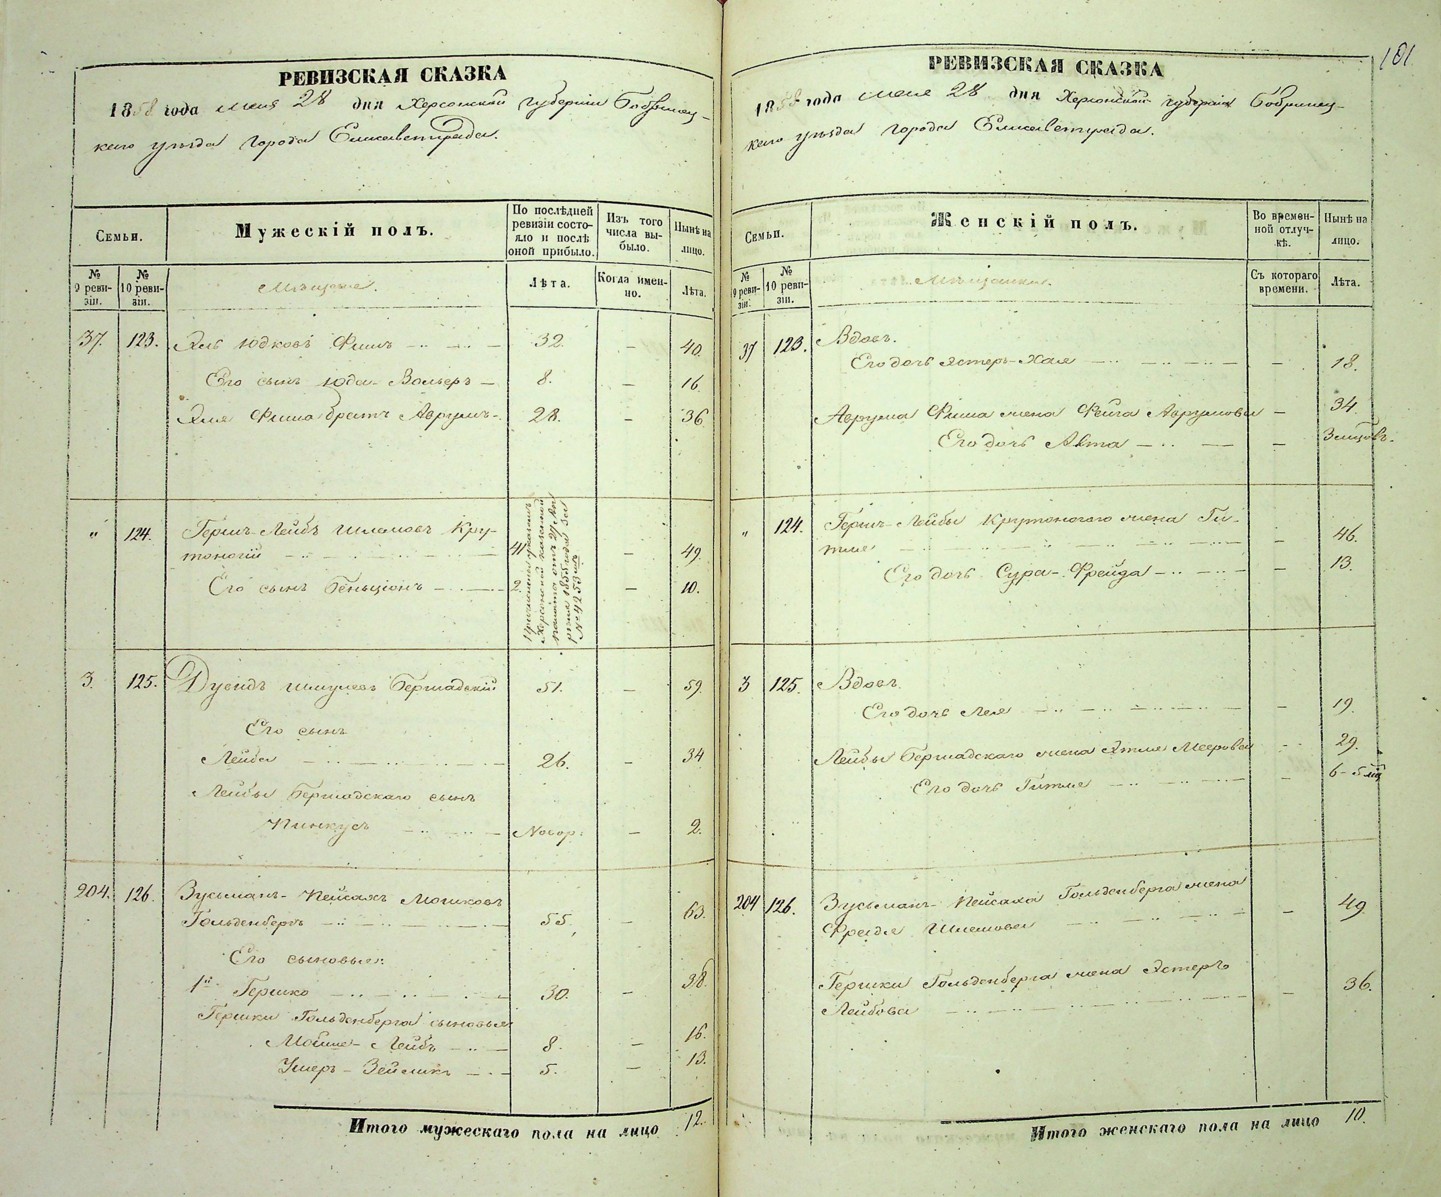 РЕВИЗСКАЯ СКАЗКА
1858 года мая 28 дня Херсонской губернiи Бобринец-
каго уѣзда города Елисаветграда.
Семьи.
Мужескiй полъ.
По послѣдней ревизiи состояло и послѣ оной прибыло.
Изъ того числа выбыло.
Нынѣ на лицо.
№ 9 ревизiи.
№ 10 ревизiи.
Мѣщане.
Лѣта.
Когда именно.
Лѣта.
37. 123. Эль Юдковъ Фишъ 32. — 40.
Его сынъ Юда-Вольеръ — 8. — 16
Эля Фиша братъ Аврумъ 28. — 36
" 124. Гершъ-Лейбъ Шломовъ Кру-
тоногiй 41 — 49.
Его сынъ Беньцiонъ 2. — 10.
Херсонской казенной
палаты отъ 29
1855 года за
№ 9253
3. 125. Дувидъ Шмулевъ Бершадскiй 51. — 59.
Его сынъ
Лейба 26. — 34
Лейбы Бершадскаго сынъ
Пинкусъ Новор: — 2.
204. 126. Зусьманъ-Пейсахъ Мошковъ
Гольденбергъ 55, — 63.
Его сыновья:
1й Гершко 30. — 38.
Гершки Гольденберга сыновья
Мойше-Лейбъ 8. — 16.
Умеръ-Зейликъ 5. — 13.
Итого мужескаго пола на лицо 12.
101
РЕВИЗСКАЯ СКАЗКА
1858 года мая 28 дня Херсонской губернiи Бобринец-
каго уѣзда города Елисаветграда.
Семьи.
Женскiй полъ.
Во временной отлучкѣ.
Нынѣ на лицо.
№ 9 ревизiи.
№ 10 ревизiи.
Мѣщанки.
Съ котораго времени.
Лѣта.
37 123. Вдовъ.
Его дочь Эстеръ-Хая — 18.
Аврума Фиша жена Фейга Аврумова — 34
Его дочь Акта — 3 мѣсяцовъ.
" 124. Гершъ-Лейбы Крутоногаго жена Ги-
тля — 46.
Его дочь Сура-Фрейда — 13.
3 125. Вдовъ.
Его дочь Лея — 19.
Лейбы Бершадскаго жена Этля Меерова — 29.
Его дочь Гитля — 6-5 мѣ
204 126. Зусьманъ-Пейсаха Гольденберга жена
Фрейда Шлемова — 49
Гершки Гольденберга жена Эстеръ
Лейбова — 36.
Итого женскаго пола на лицо 10.